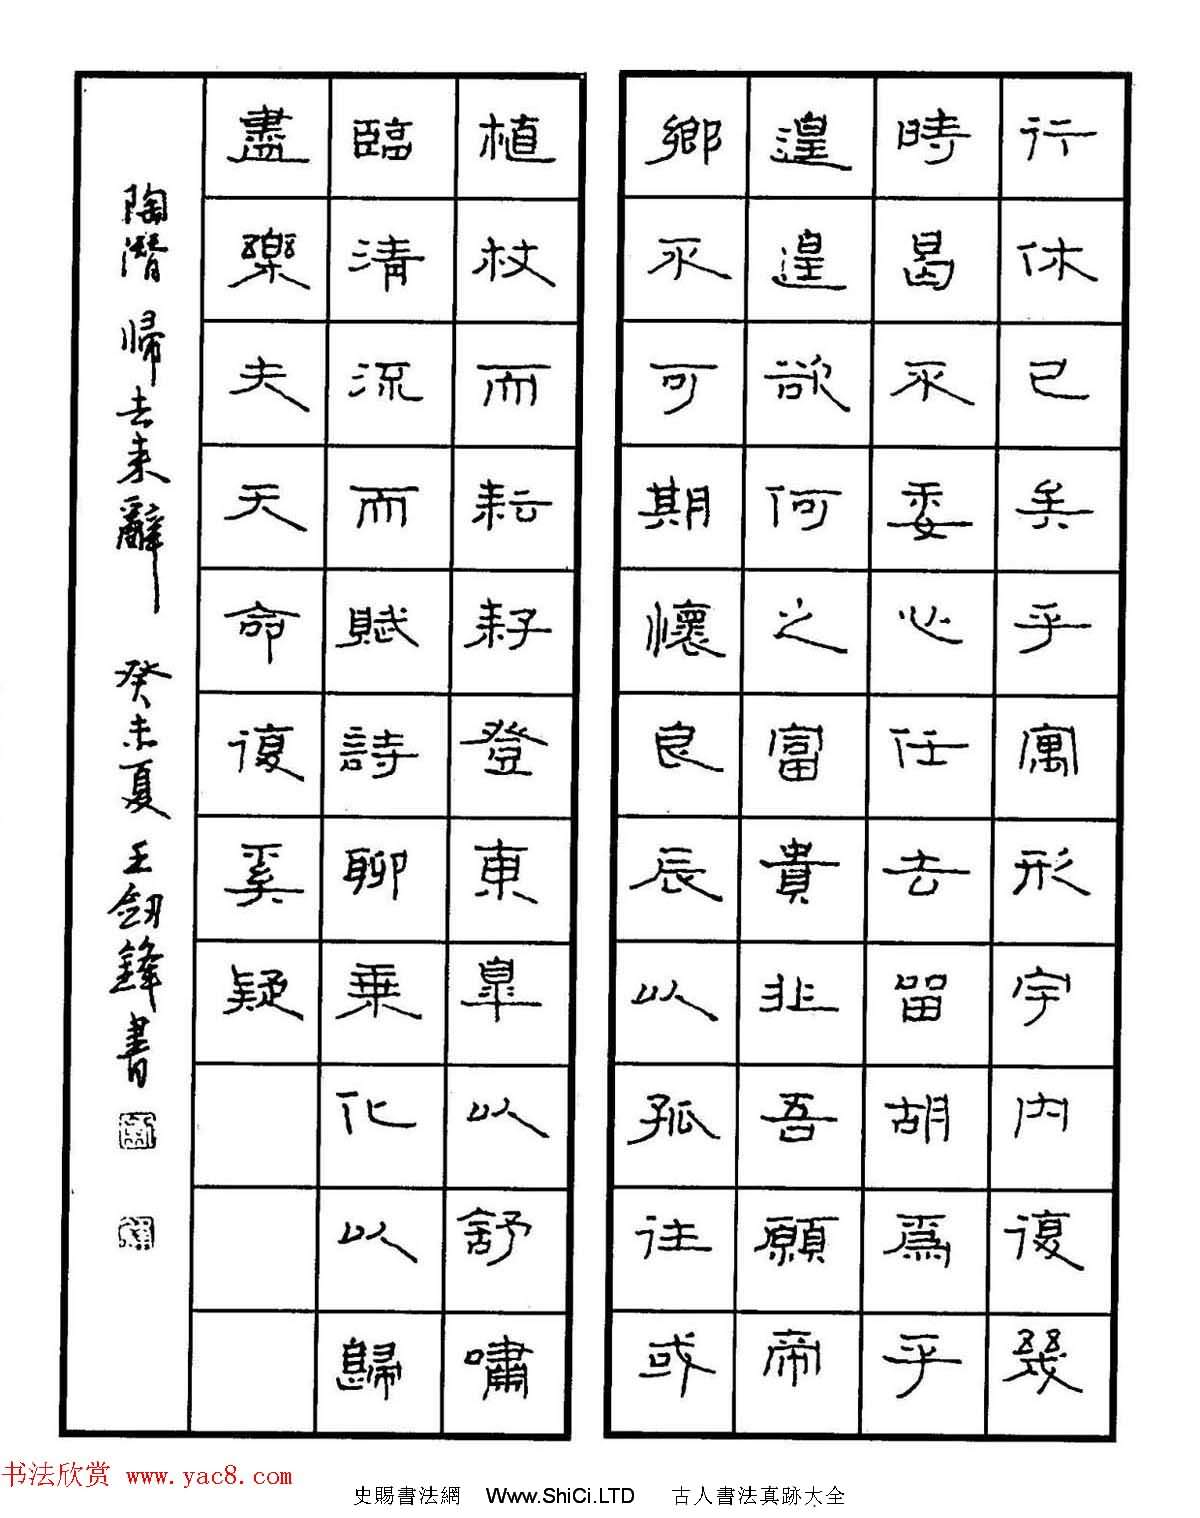 行休已矣乎寓形宇内復幾
時曷不委心任去留胡爲乎
遑遑欲何之富貴非吾願帝
鄉不可期懷良辰以孤往或
植杖而耘耔登東皋以舒嘯
臨清流而賦詩聊乘化以歸
盡樂夫天命復奚疑
陶潛 歸去来辭 癸未夏 王劍鋒書
书法欣赏 www.yac8.com
史賜書法網 Www.ShiCi.LTD 古人書法真跡大全